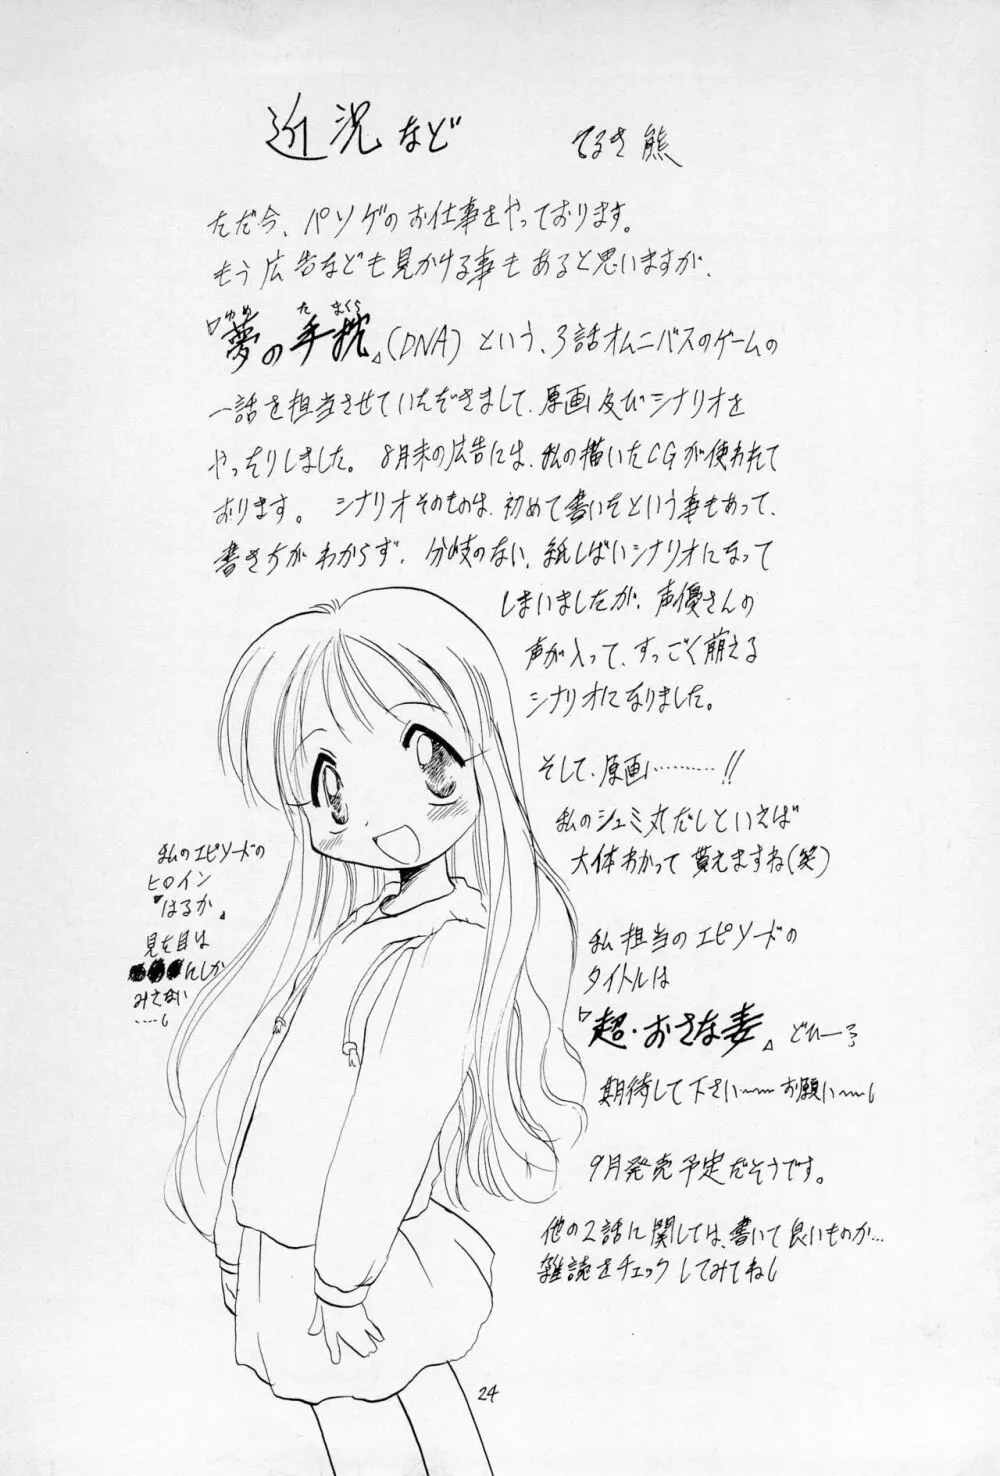 近況など
てるき熊
ただ今、パソゲのお仕事をやっております。
もう広告なども見かける事もあると思いますが、
『夢の手枕』(DNA)という、3話オムニバスのゲームの
ゆめ た まくら
一話を担当させていただきまして、原画及びシナリオを
やったりしました。8月末の広告には、私の描いたCGが使われて
おります。シナリオそのものは、初めて書いたという事もあって、
書き方がわからず、分岐のない、紙しばいシナリオになって
しまいましたが、声優さんの
声が入って、すっごく萌える
シナリオになりました。
そして、原画………!!
私のシュミ丸だしといえば
大体わかって貰えますね(笑)
私のエピソードの
ヒロイン
『はるか』
見た目は
にしか
みえない
……し
私担当のエピソードの
タイトルは
『超・おさな妻』どひーっ
期待して下さい〜〜お願い〜〜し
9月発売予定だそうです。
他の2話に関しては、書いて良いものか…
雑誌をチェックしてみてねし
24